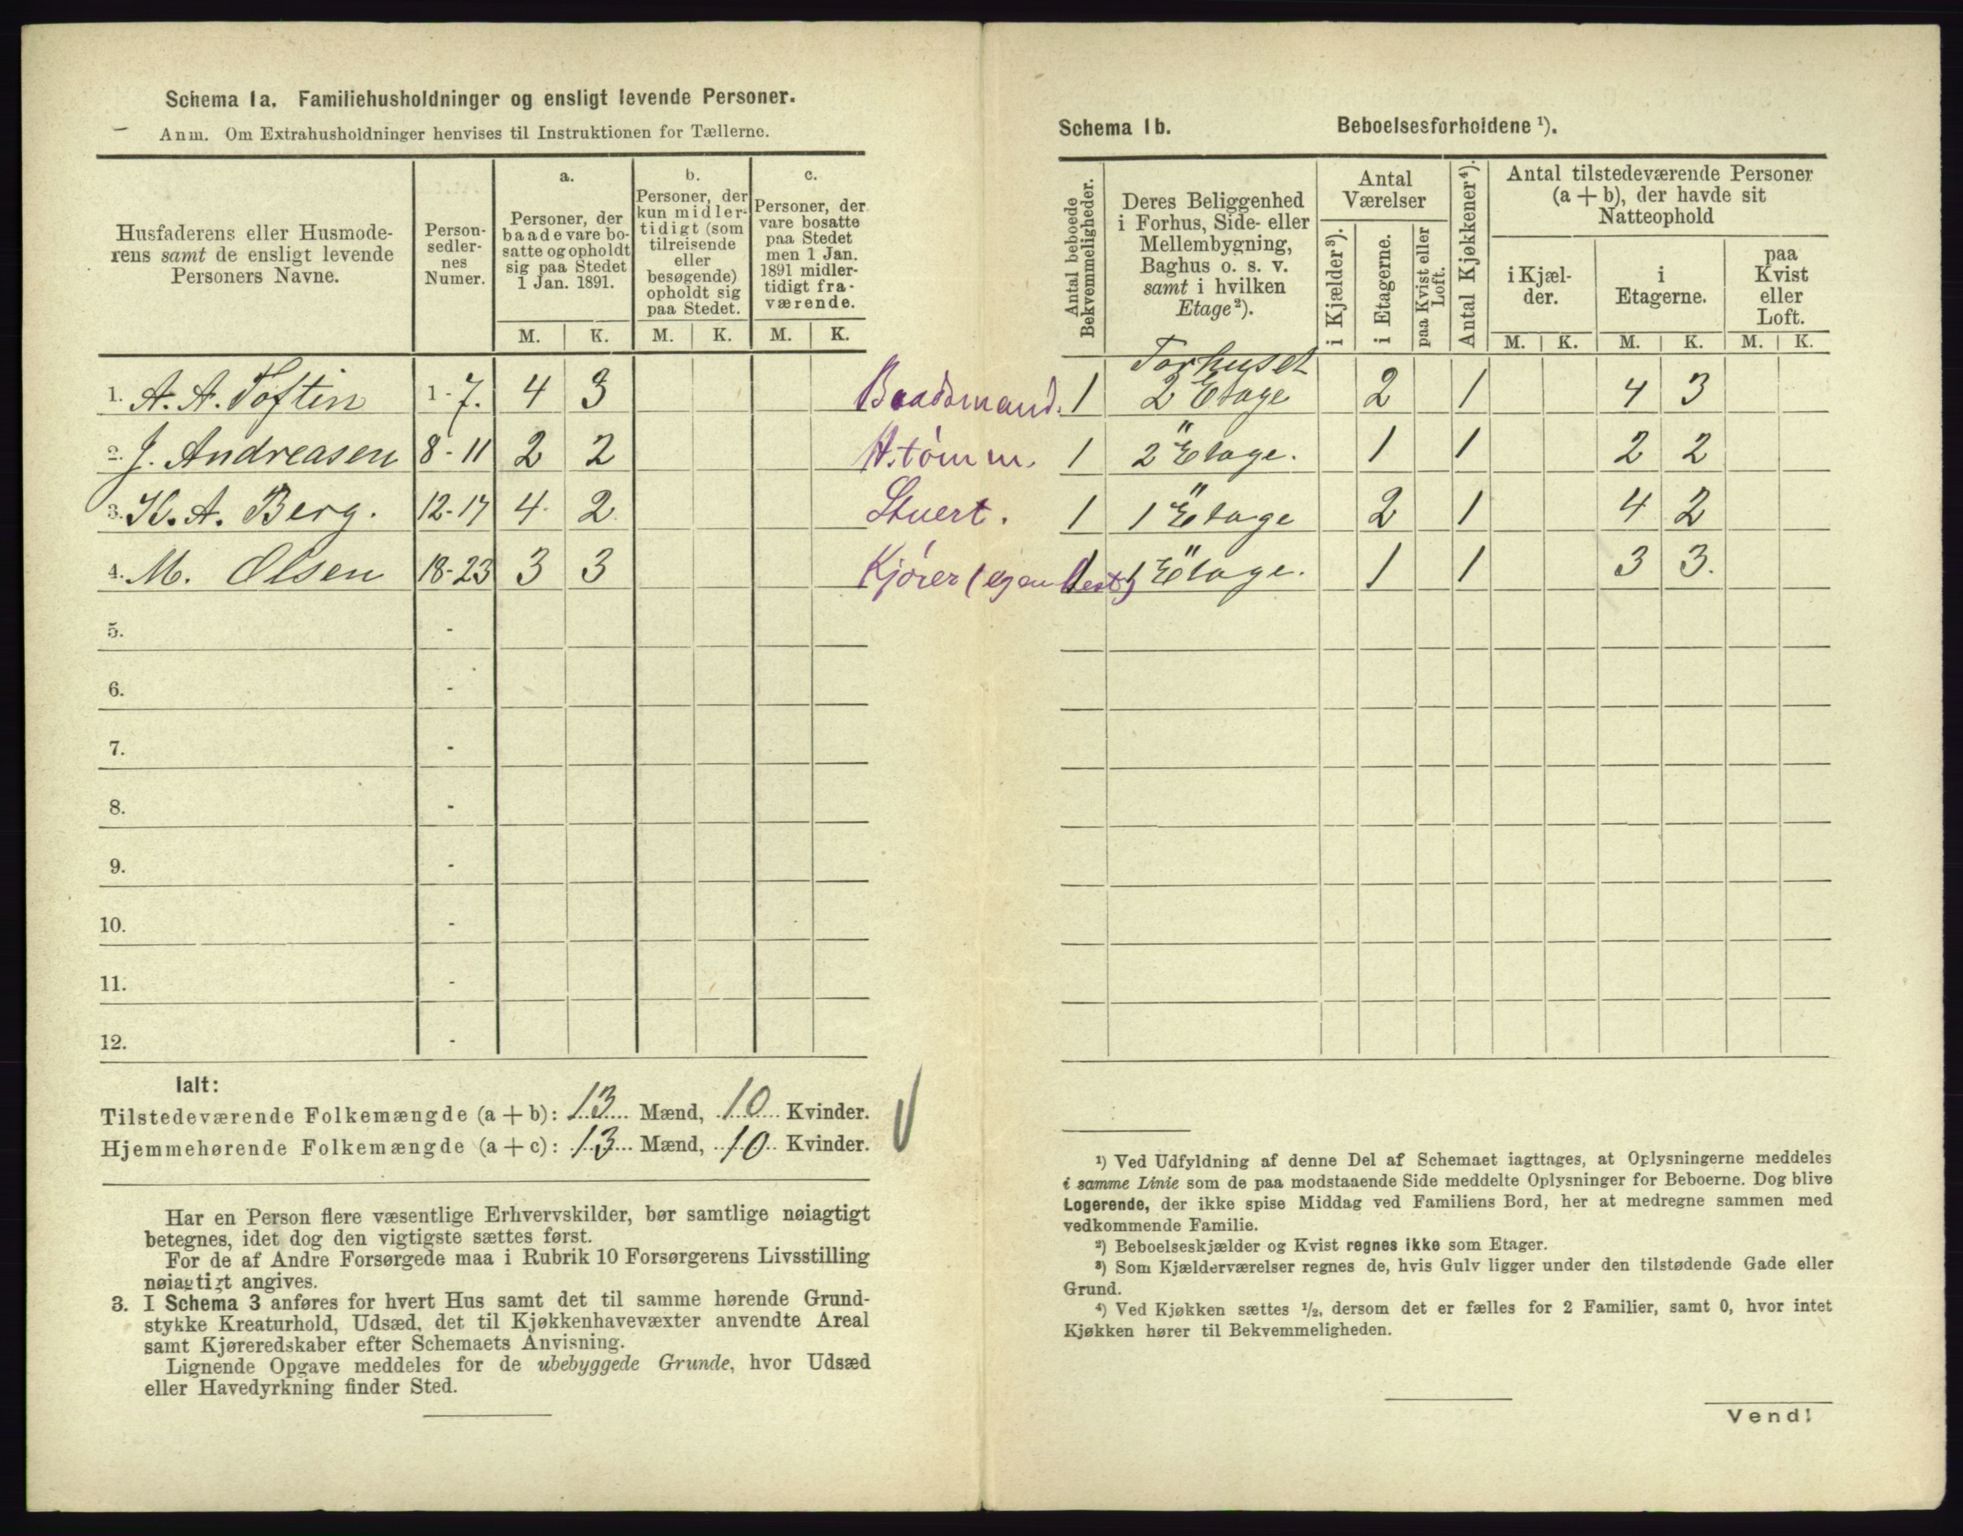 Schema 1a. Familiehusholdninger og ensligt levende Personer.
Anm. Om Extrahusholdninger henvises til Instruktionen for Tællerne.
Husfaderens eller Husmoderens samt de ensligt levende Personers Navne.
Person-sedler-nes Numer.
a. Personer, der baade vare bosatte og opholdt sig paa Stedet 1 Jan. 1891.
b. Personer, der kun midlertidigt (som tilreisende eller besøgende) opholdt sig paa Stedet.
c. Personer, der vare bosatte paa Stedet men 1 Jan. 1891 midlertidigt fraværende.
M. K. M. K. M. K.
1. A. A. Toftin 1-7. 4 3 Baadsmand.
2. J. Andreasen 8-11 2 2 H.tømm.
3. K. A. Berg. 12-17 4 2 Stuert.
4. M. Olsen 18-23 3 3 Kjører (egen Hest)
5. -
6. -
7. -
8. -
9. -
10. -
11. -
12. -
Ialt:
Tilstedeværende Folkemængde (a + b): 13 Mænd, 10 Kvinder.
Hjemmehørende Folkemængde (a + c): 13 Mænd, 10 Kvinder.
Har en Person flere væsentlige Erhvervskilder, bør samtlige nøiagtigt
betegnes, idet dog den vigtigste sættes først.
For de af Andre Forsørgede maa i Rubrik 10 Forsørgerens Livsstilling
nøiagtigt angives.
3. I Schema 3 anføres for hvert Hus samt det til samme hørende Grund-
stykke Kreaturhold, Udsæd, det til Kjøkkenhavevæxter anvendte Areal
samt Kjøreredskaber efter Schemaets Anvisning.
Lignende Opgave meddeles for de ubebyggede Grunde, hvor Udsæd
eller Havedyrkning finder Sted.
Schema 1b. Beboelsesforholdene ¹).
Antal beboede Bekvemmeligheder.
Deres Beliggenhed i Forhus, Side- eller Mellembygning, Baghus o. s. v. samt i hvilken Etage²).
Antal Værelser
i Kjælder³).
i Etagerne.
paa Kvist eller Loft.
Antal Kjøkkener⁴).
Antal tilstedeværende Personer (a + b), der havde sit Natteophold
i Kjælder.
i Etagerne.
paa Kvist eller Loft.
M. K. M. K. M. K.
Forhuset
1 2 Etage 2 1 4 3
1 2 " Etage. 1 1 2 2
1 1 " Etage 2 1 4 2
1 1 " Etage. 1 1 3 3.
¹) Ved Udfyldning af denne Del af Schemaet iagttages, at Oplysningerne meddeles
i samme Linie som de paa modstaaende Side meddelte Oplysninger for Beboerne. Dog blive
Logerende, der ikke spise Middag ved Familiens Bord, her at medregne sammen med
vedkommende Familie.
²) Beboelseskjælder og Kvist regnes ikke som Etager.
³) Som Kjælderværelser regnes de, hvis Gulv ligger under den tilstødende Gade eller
Grund.
⁴) Ved Kjøkken sættes ½, dersom det er fælles for 2 Familier, samt 0, hvor intet
Kjøkken hører til Bekvemmeligheden.
Vend!